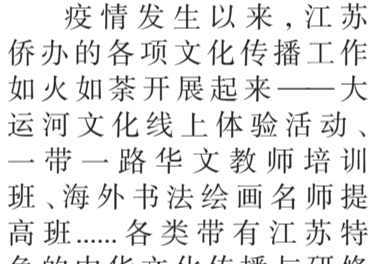 疫情发生以来,江苏
侨办的各项文化传播工作
如火如荼开展起来——大
运河文化线上体验活动、
一带一路华文教师培训
班、海外书法绘画名师提
高班……各类带有江苏特
色的中华文化传播与研修